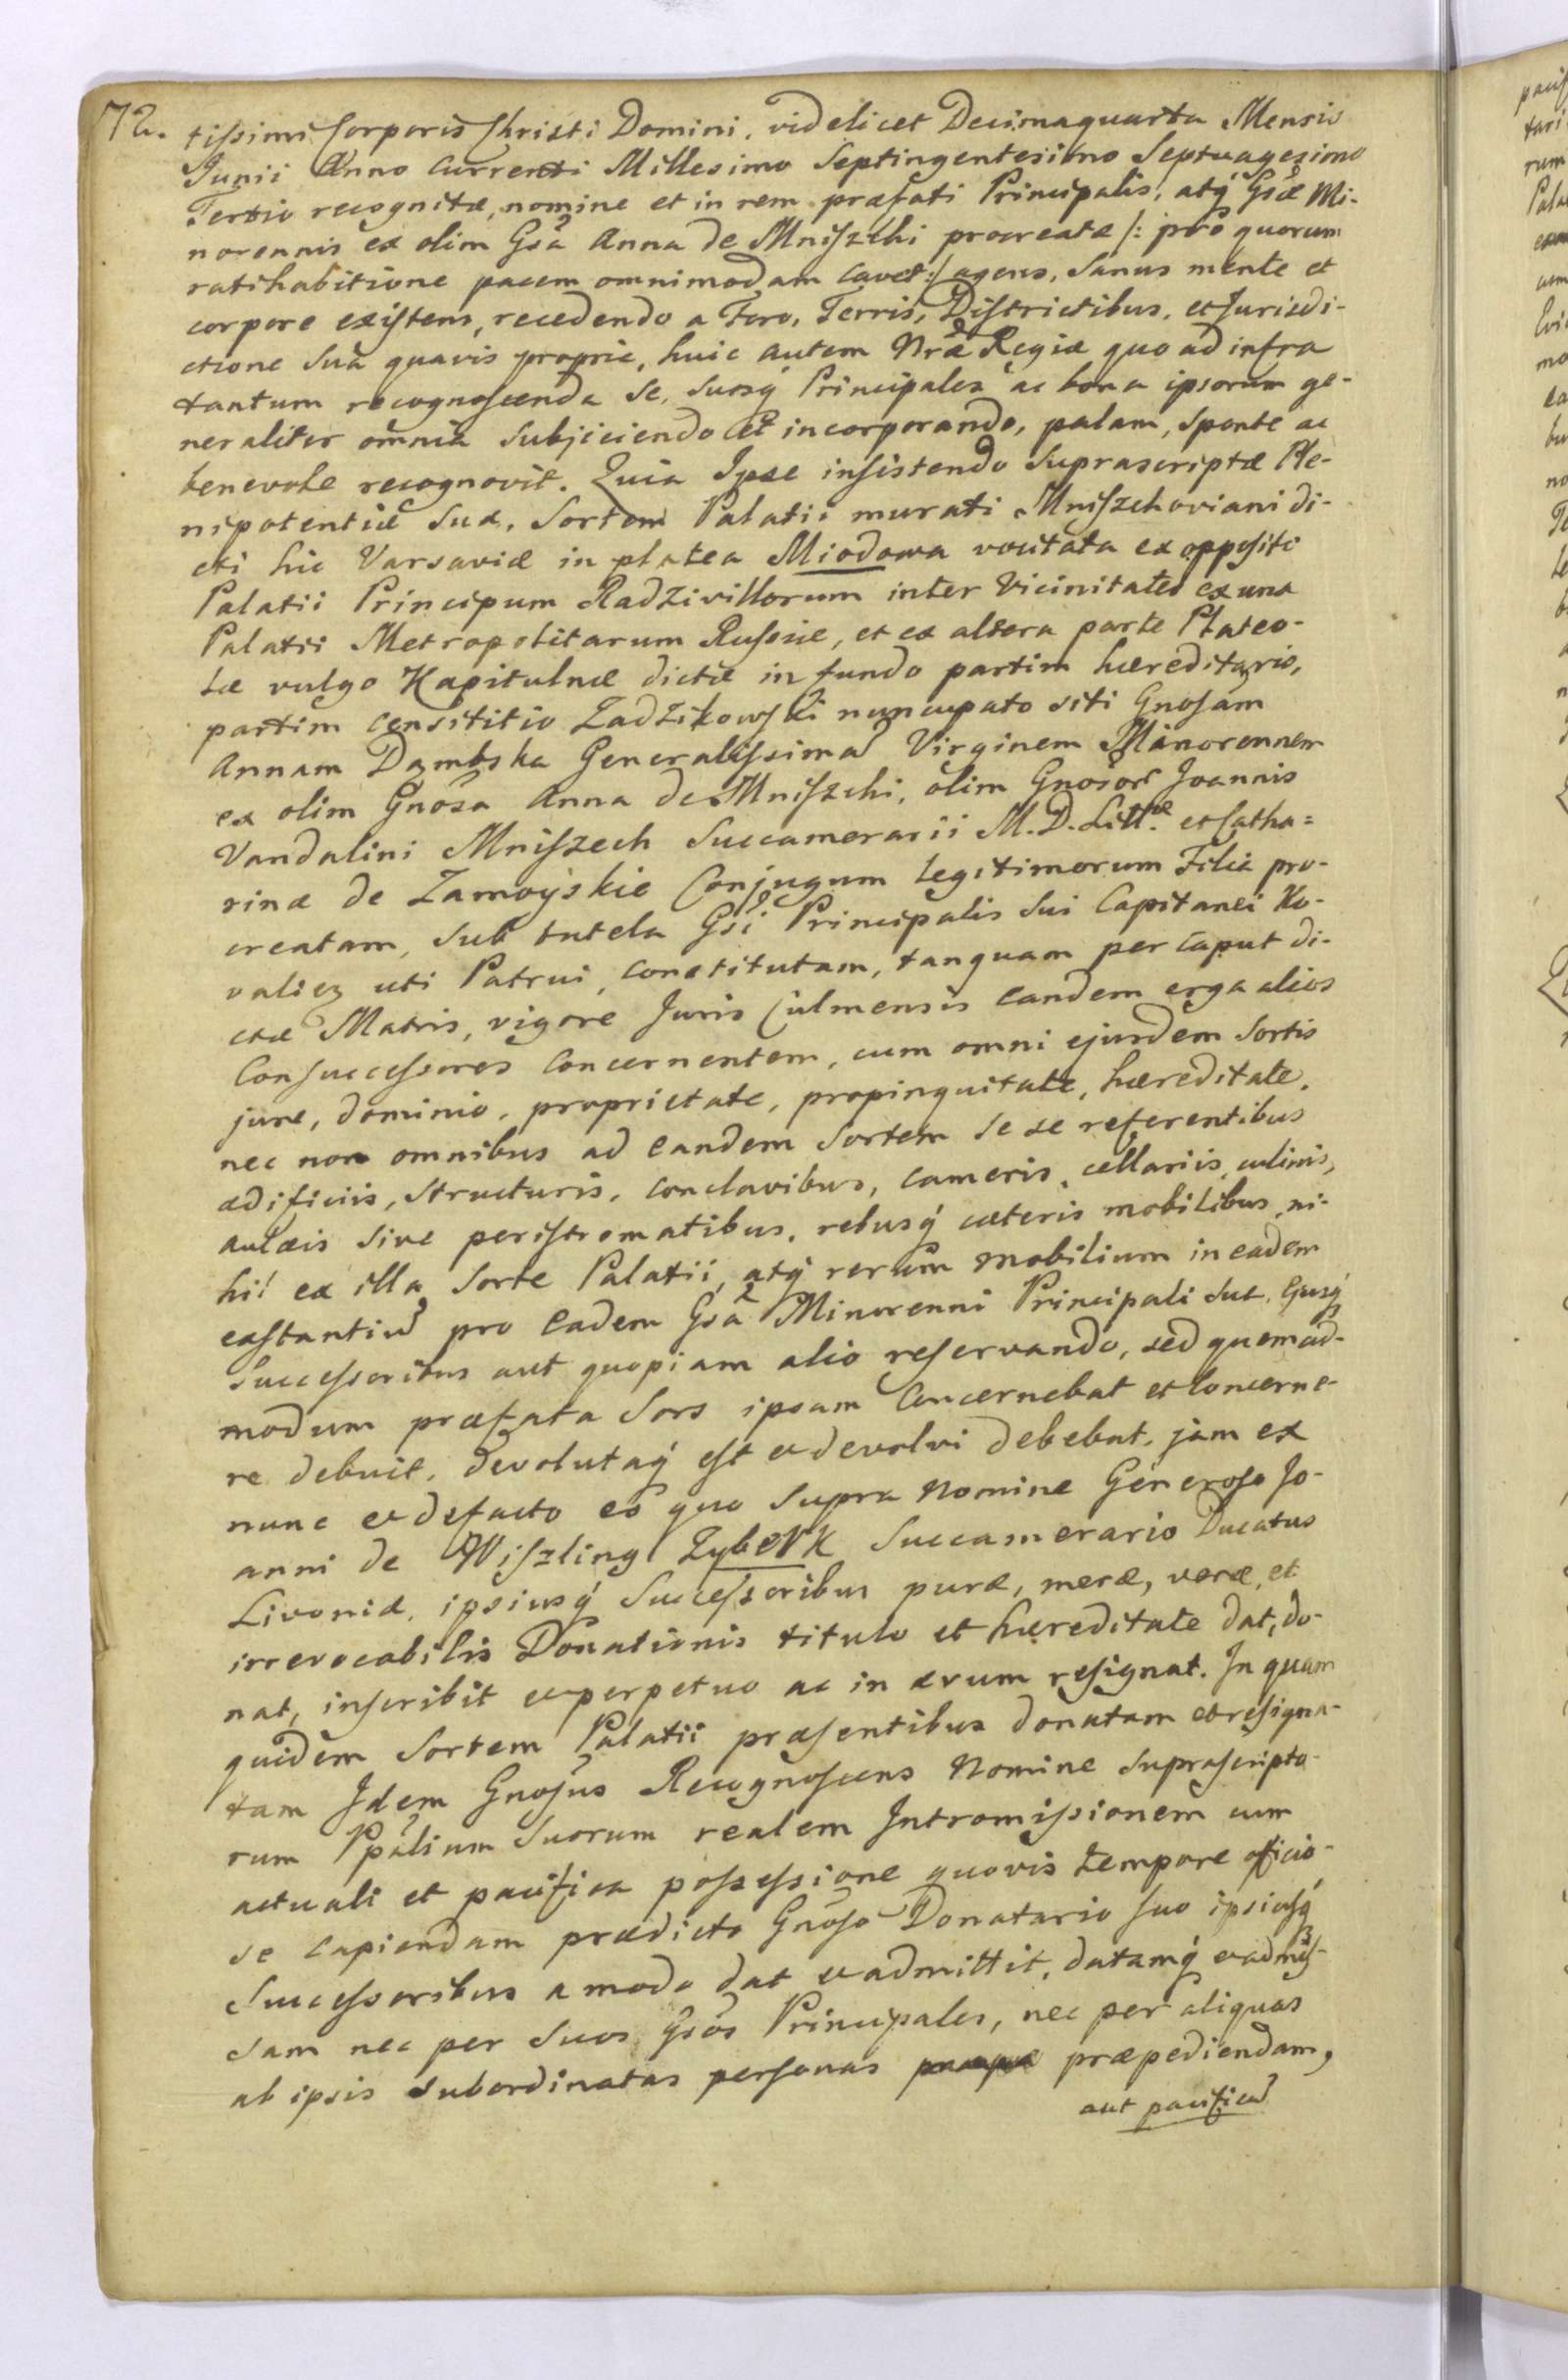 72.
tissimi Corporis Christi Domini, videlicet Decimaquarta Mensis
Junii Anno currenti Millesimo Septingentesimo Septuagesimo
Tertio recognitæ, nomine et in rem præfati Principalis, atq́ Gsæ Mi-
norennis ex olim Gsa Anna de Mniszchi procreatæ /: pro quorum
ratihabitione pacem omnimodam cavet :/ agens, Sanus mente et
corpore existens, recedendo a Foro, Terris, Districtibus, et Jurisdi-
ctione Sua quavis propria, huic autem Nræ Regiæ quo ad infra
tantum recognoscenda Se, Suosq́ Principales ac bona ipsorum ge-
neraliter omnia Subjiciendo et incorporando, palam, sponte ac
benevole recognovit. Quia Ipse insistendo Suprascriptæ Ple-
nipotentiæ Suæ, Sortem Palatii murati Mniszchoviani di-
cti hic Varsaviæ in platea Miodowa vocitata ex opposito
Palatii Principum Radzivillorum inter Vicinitates ex una
Palatii Metropolitarum Russiæ, et ex altera parte Plateo-
læ vulgo Kapitulnæ dictæ in fundo partim hæreditario,
partim censititio Zadzikowski nuncupato siti Gnosam
Annam Dąmbska Generalissima Virginem Minorennem
ex olim Gnosa Anna de Mniszchi, olim Gnosor Joannis
Vandalini Mniszech Succamerarii M. D. Litt.æ et Catha=
rinæ de Zamoyskie Conjugum legitimorum Filia pro-
creatam, Sub tutela Gsi Principalis Sui Capitanei Ko-
valien uti Patrui, constitutam, tanquam per caput di-
ctæ Matris, vigore Juris Culmensis eandem erga alios
Consuccessores concernentem, cum omni ejusdem Sortis
jure, dominio, proprietate, propinquitate, hæreditate,
nec non omnibus ad eandem Sortem se se referentibus
ædificiis, Structuris, conclavibus, cameris, cellariis, culinis,
aulæis Sive peristromatibus, rebusq́ cæteris mobilibus, ni-
hil ex illa Sorte Palatii, atq́ rerum mobilium in eadem
exstantiu pro eadem Gsa Minorenni Principali Sua, Ejusq́
Successoribus aut quopiam alio reservando, sed quemad-
modum præfata Sors ipsam concernebat et concerne-
re debuit, devolutaq́ est et devolvi debebat, jam ex
nunc et defacto eo quo Supra Nomine Generoso Jo-
anni de Wiszling Zyberk Succamerario Ducatus
Livoniæ, ipsiusq́ Successoribus puræ, meræ, veræ, et
irrevocabilis Donationis titulo et hæreditate dat, do-
nat, inscribit et perpetuo ac in ævum resignat. In quam
quidem Sortem Palatii præsentibus donatam et resigna-
tam Idem Gnosus Recognoscens Nomine Suprascripto-
rum Ppalium Suorum realem Intromissionem cum
actuali et pacifica possessione quovis tempore officio-
se capiendam prædicto Gnoso Donatario suo ipsiusq́
Successoribus a modo dat et admittit, datamq́ et admis-
sam nec per Suos Gsos Principales, nec per aliquas
ab ipsis Subordinatas personas præpediendam,
aut pacifica